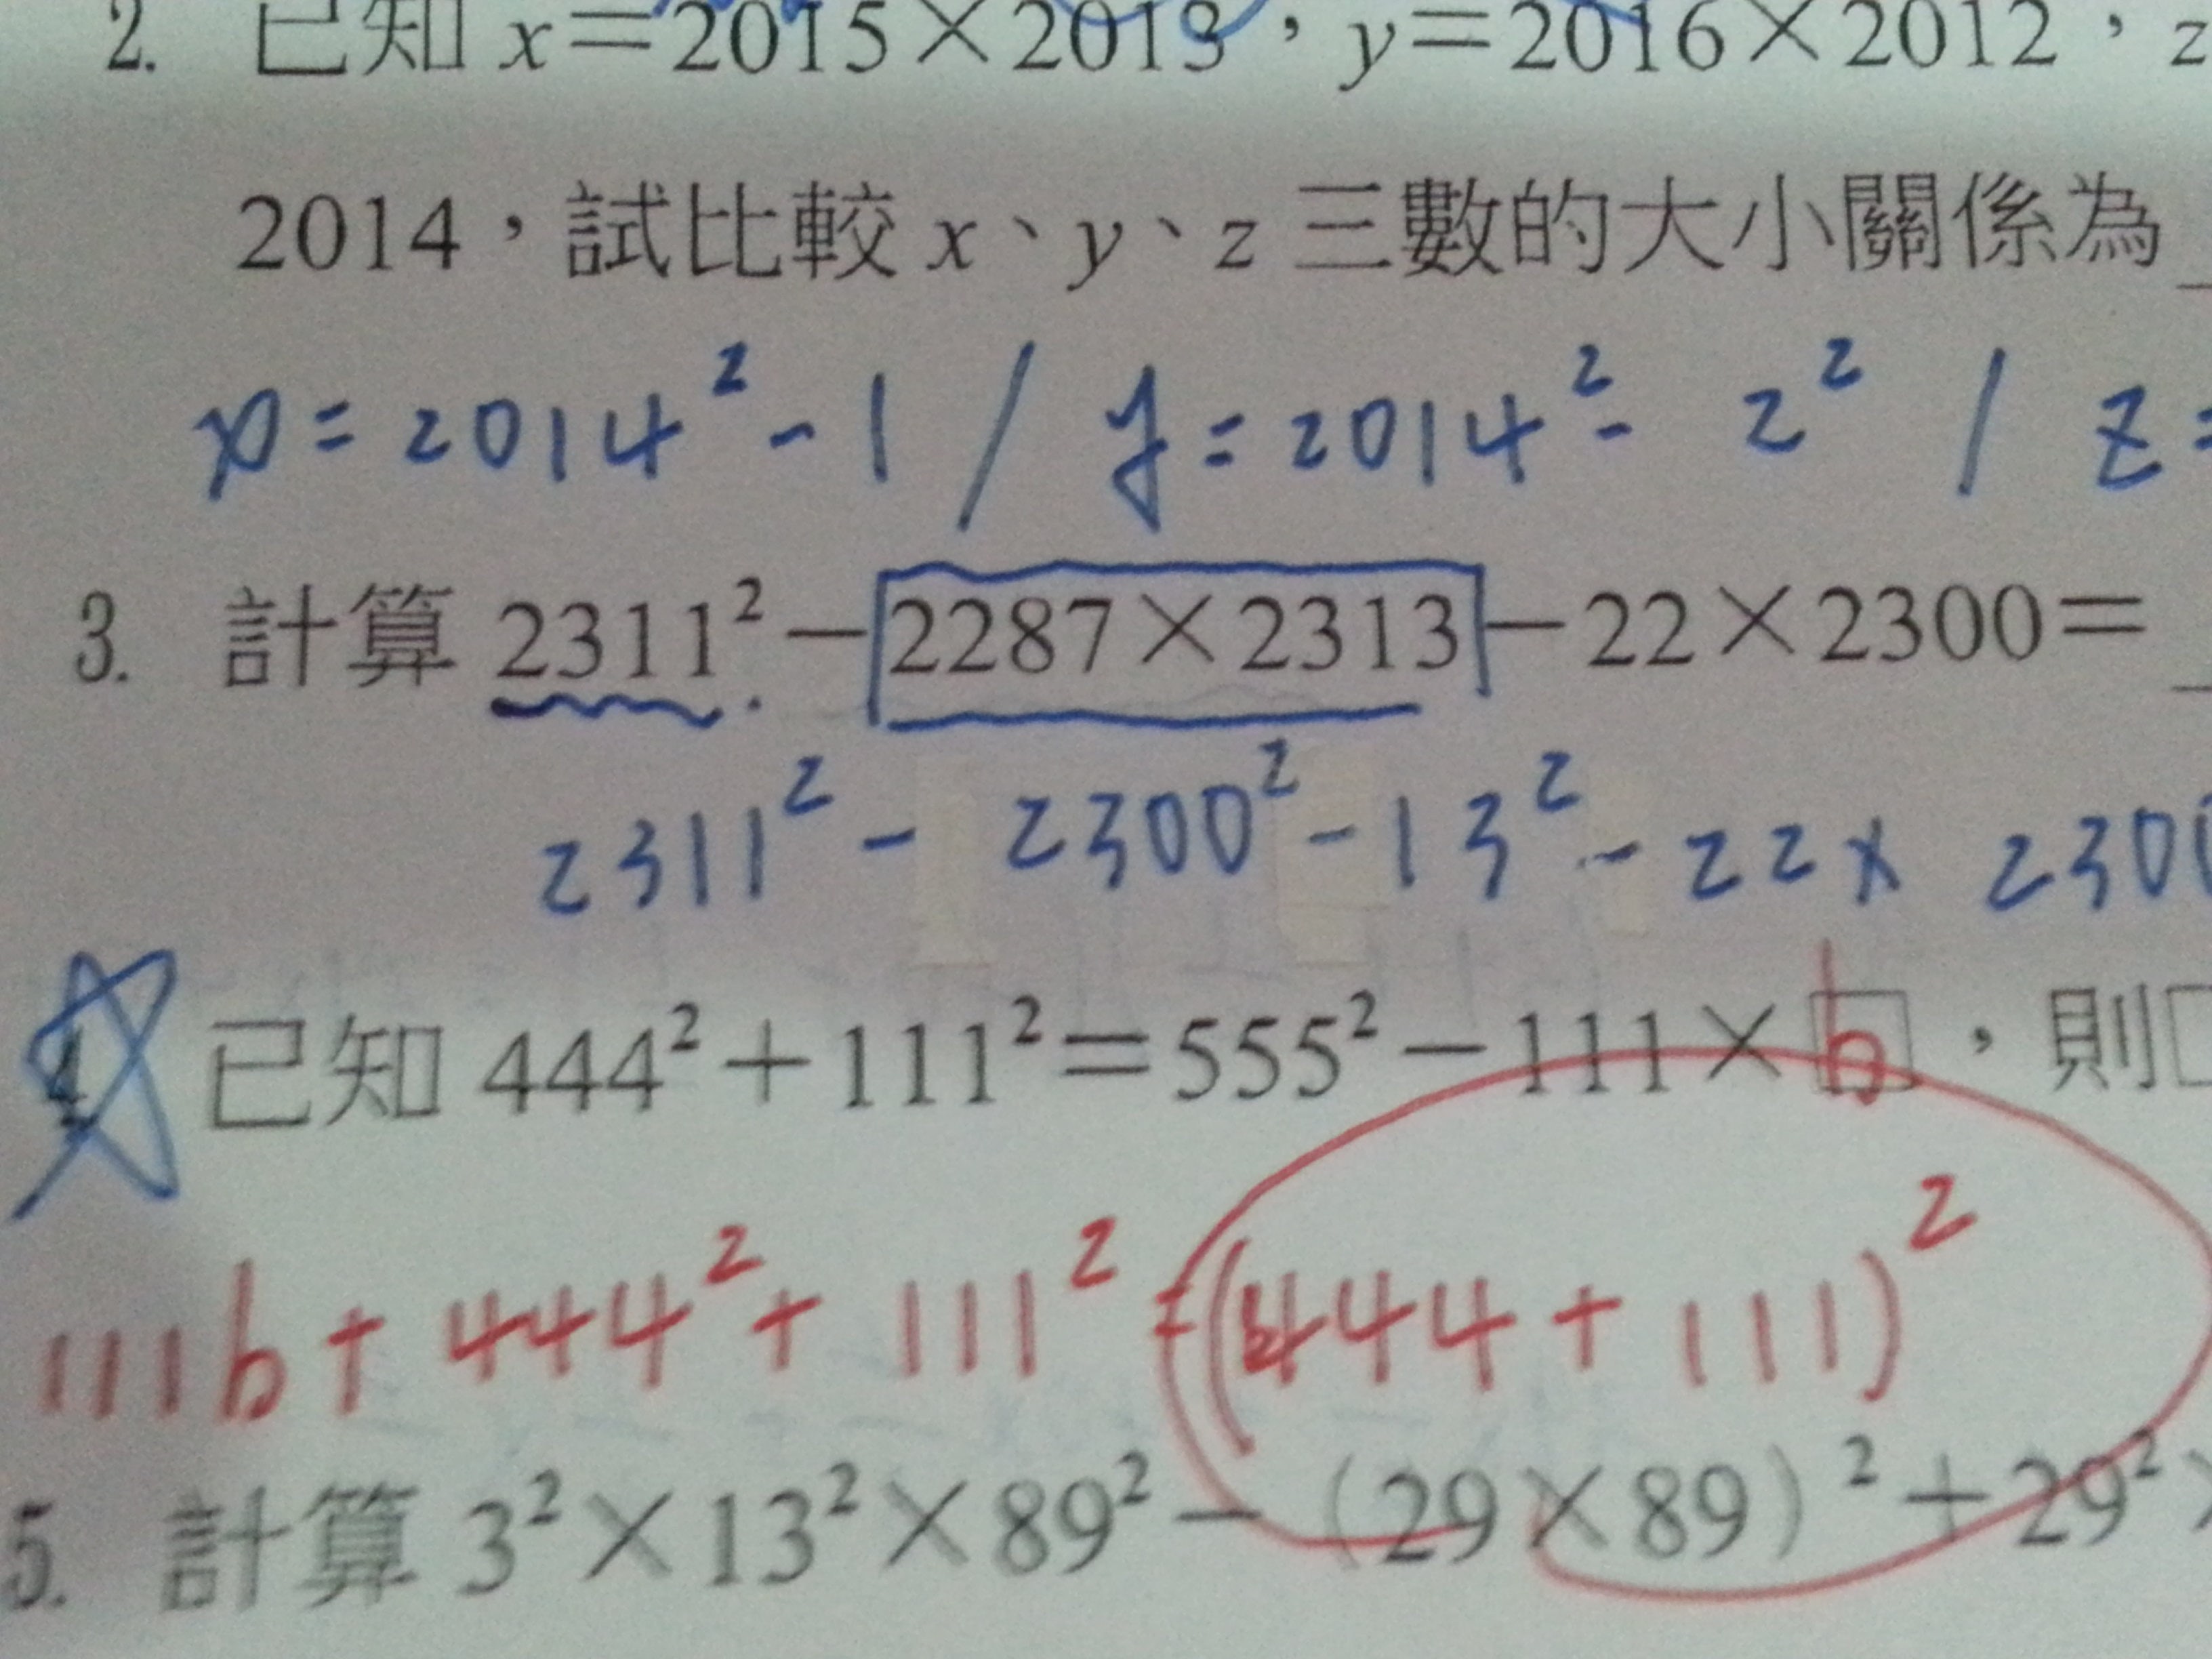 2. 已知 x=2015×2013，y=2016×2012，z
2014，試比較 x、y、z 三數的大小關係為
x = 2014² - 1 / y = 2014² - 2² / z =
3. 計算 2311²－2287×2313－22×2300＝
2311² - 2300² - 13² - 22 x 230
4. 已知 444²＋111²＝555²－111×□ b，則□
111b + 444² + 111² = (444 + 111)²
5. 計算 3²×13²×89²－（29×89）²＋29²×